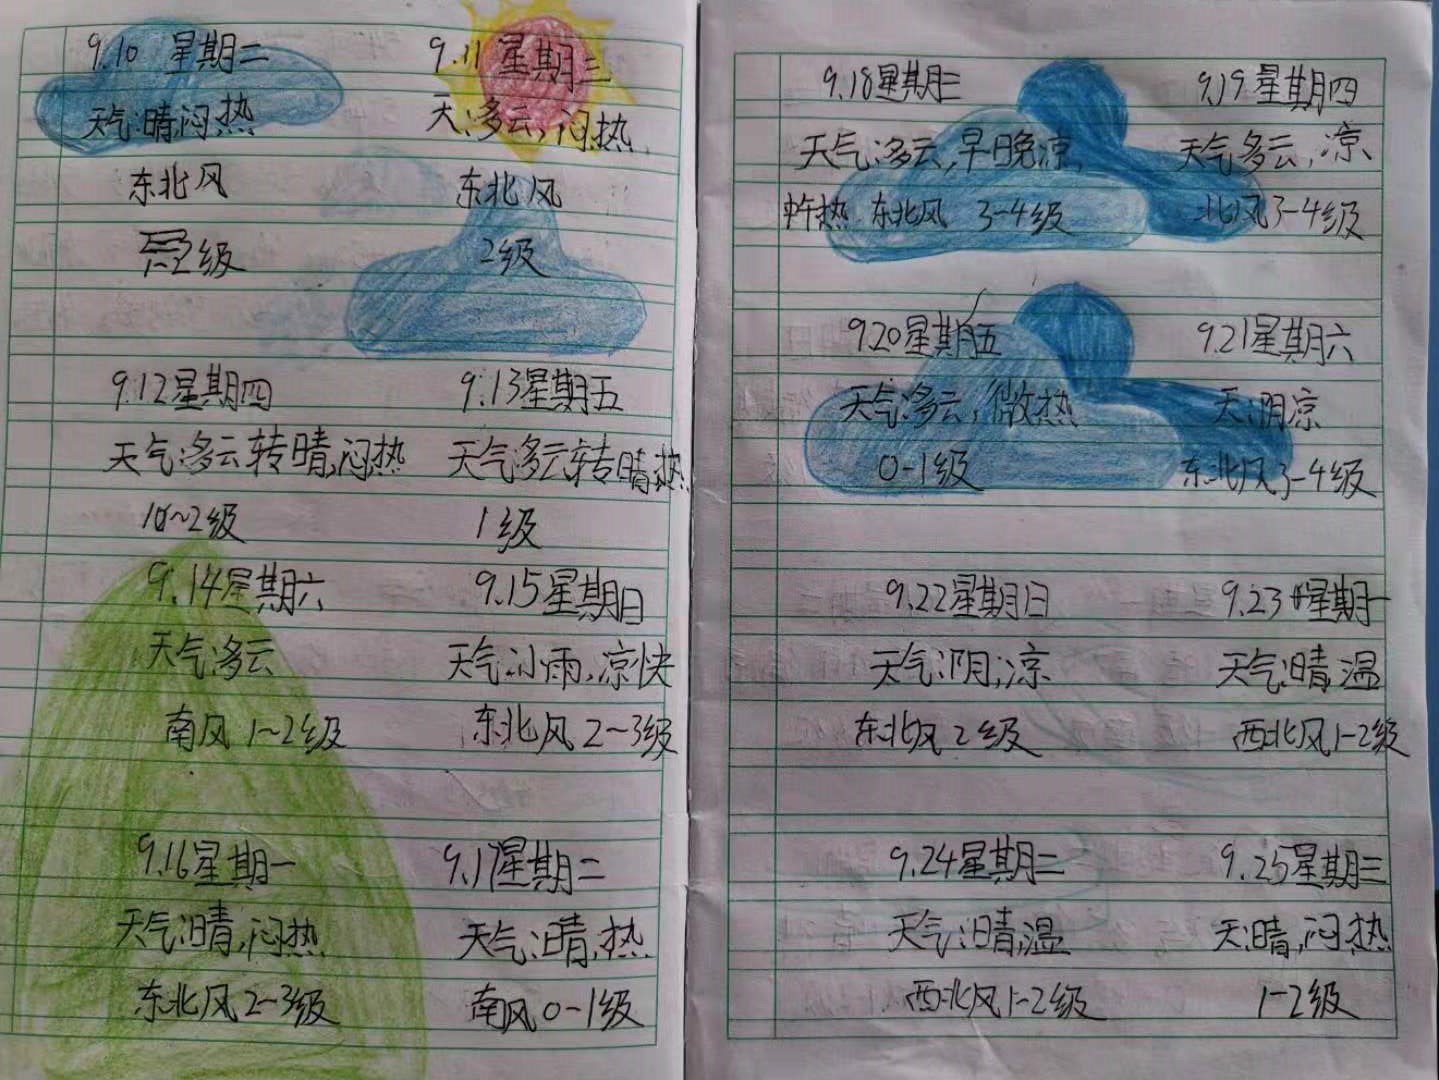 9.10 星期二 9.11 星期三
天气:晴闷热 天:多云,闷热
东北风 东北风
2级 2级
9.12星期四 9.13星期五
天气:多云转晴,闷热 天气多云转晴热
1~2级 1级
9.14星期六 9.15星期日
天气:多云 天气小雨,凉快
南风1~2级 东北风2~3级
9.16星期一 9.17星期二
天气:晴,闷热 天气:晴,热
东北风2~3级 南风0-1级
9.18星期三 9.19星期四
天气:多云,早晚凉, 天气多云,凉
中午热 东北风 3-4级 北风3-4级
9.20星期五 9.21星期六
天气:多云,微热 天:阴凉
0-1级 东北风3-4级
9.22星期日 9.23星期一
天气:阴,凉 天气:晴,温
东北风2级 西北风1-2级
9.24星期二 9.25星期三
天气:晴,温 天:晴,闷热
西北风1-2级 1-2级